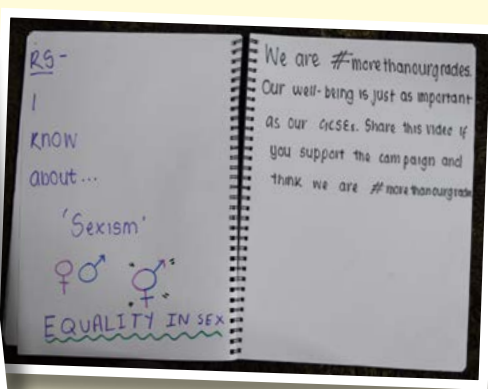 RS-
I
KNOW
about...
'Sexism'
EQUALITY IN SEX
We are #morethanourgrades.
Our well-being is just as important
as our GCSEs. Share this video if
you support the campaign and
think we are #morethanourgrade